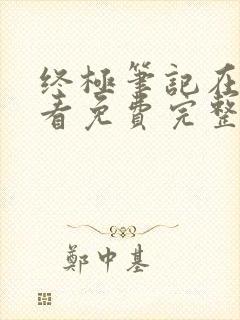 终極筆記在
看免費完整
鄭中基